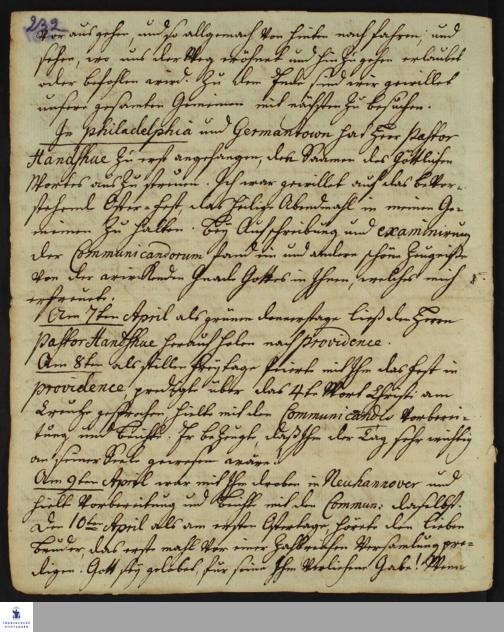 232
voraus gehen, und so allgemach von hinten nach fahren, und
sehen, wo uns der Weg eröfnet und hin zu gehen erlaubet
oder befohlen wird. Zu dem Ende sind wir gewillet
unsere gesamten Gemeinen mit nächsten zu besuchen.
In Philadelphia und Germantown hat Herr Pastor
Handshue zu erst angefangen, den Saamen des Göttlichen
Wortes auszustreuen. Ich war gewillet auf das bevor-
stehende Oster-Fest das heilige Abendmahl in meinen Ge-
meinen zu halten. Bey Aufschreibung und examinirung
der Communicandorum fand ein und andere schöne
von der wirckenden Gnade Gottes in Ihnen, welches mich
erfreuete.
Am 7ten April als grünen donnerstage ließ den Herrn
Pastor Handshue herauf holen nach providence.
Am 8ten als stillen Freytage feierte mit Ihm das Fest in
providence, predigte über das 4te Wort Christi am
Creutze gesprochen, hielte mit den Communicanten Vorberei-
tung und Beichte. Er bezeugte, daß Ihm der Tag sehr wichtig
an seiner Seele gewesen wäre.
Am 9ten April war mit Ihm droben in Neuhannover und
hielt Vorbereitung und Beicht mit den Commun: daselbst.
Den 10ten April als am ersten Ostertage, hörete den lieben
Bruder das erste mahl vor einer zahlreichen Versamlung pre-
digen. Gott sey gelobet, für seine Ihm verliehene Gabe! Wenn
FRANCKESCHE
STIFTUNGEN